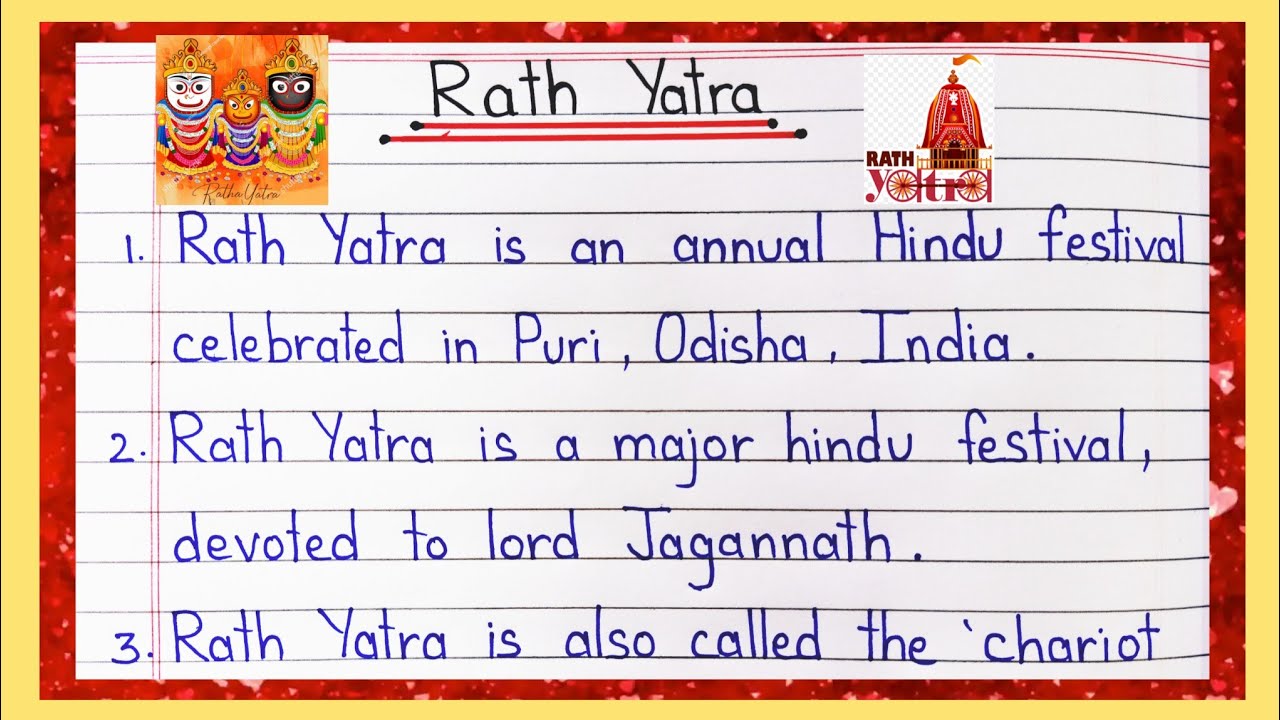 Ratha Yatra
Rath Yatra
RATH
yatra
1. Rath Yatra is an annual Hindu festival
celebrated in Puri, Odisha, India.
2. Rath Yatra is a major hindu festival,
devoted to lord Jagannath.
3. Rath Yatra is also called the 'chariot